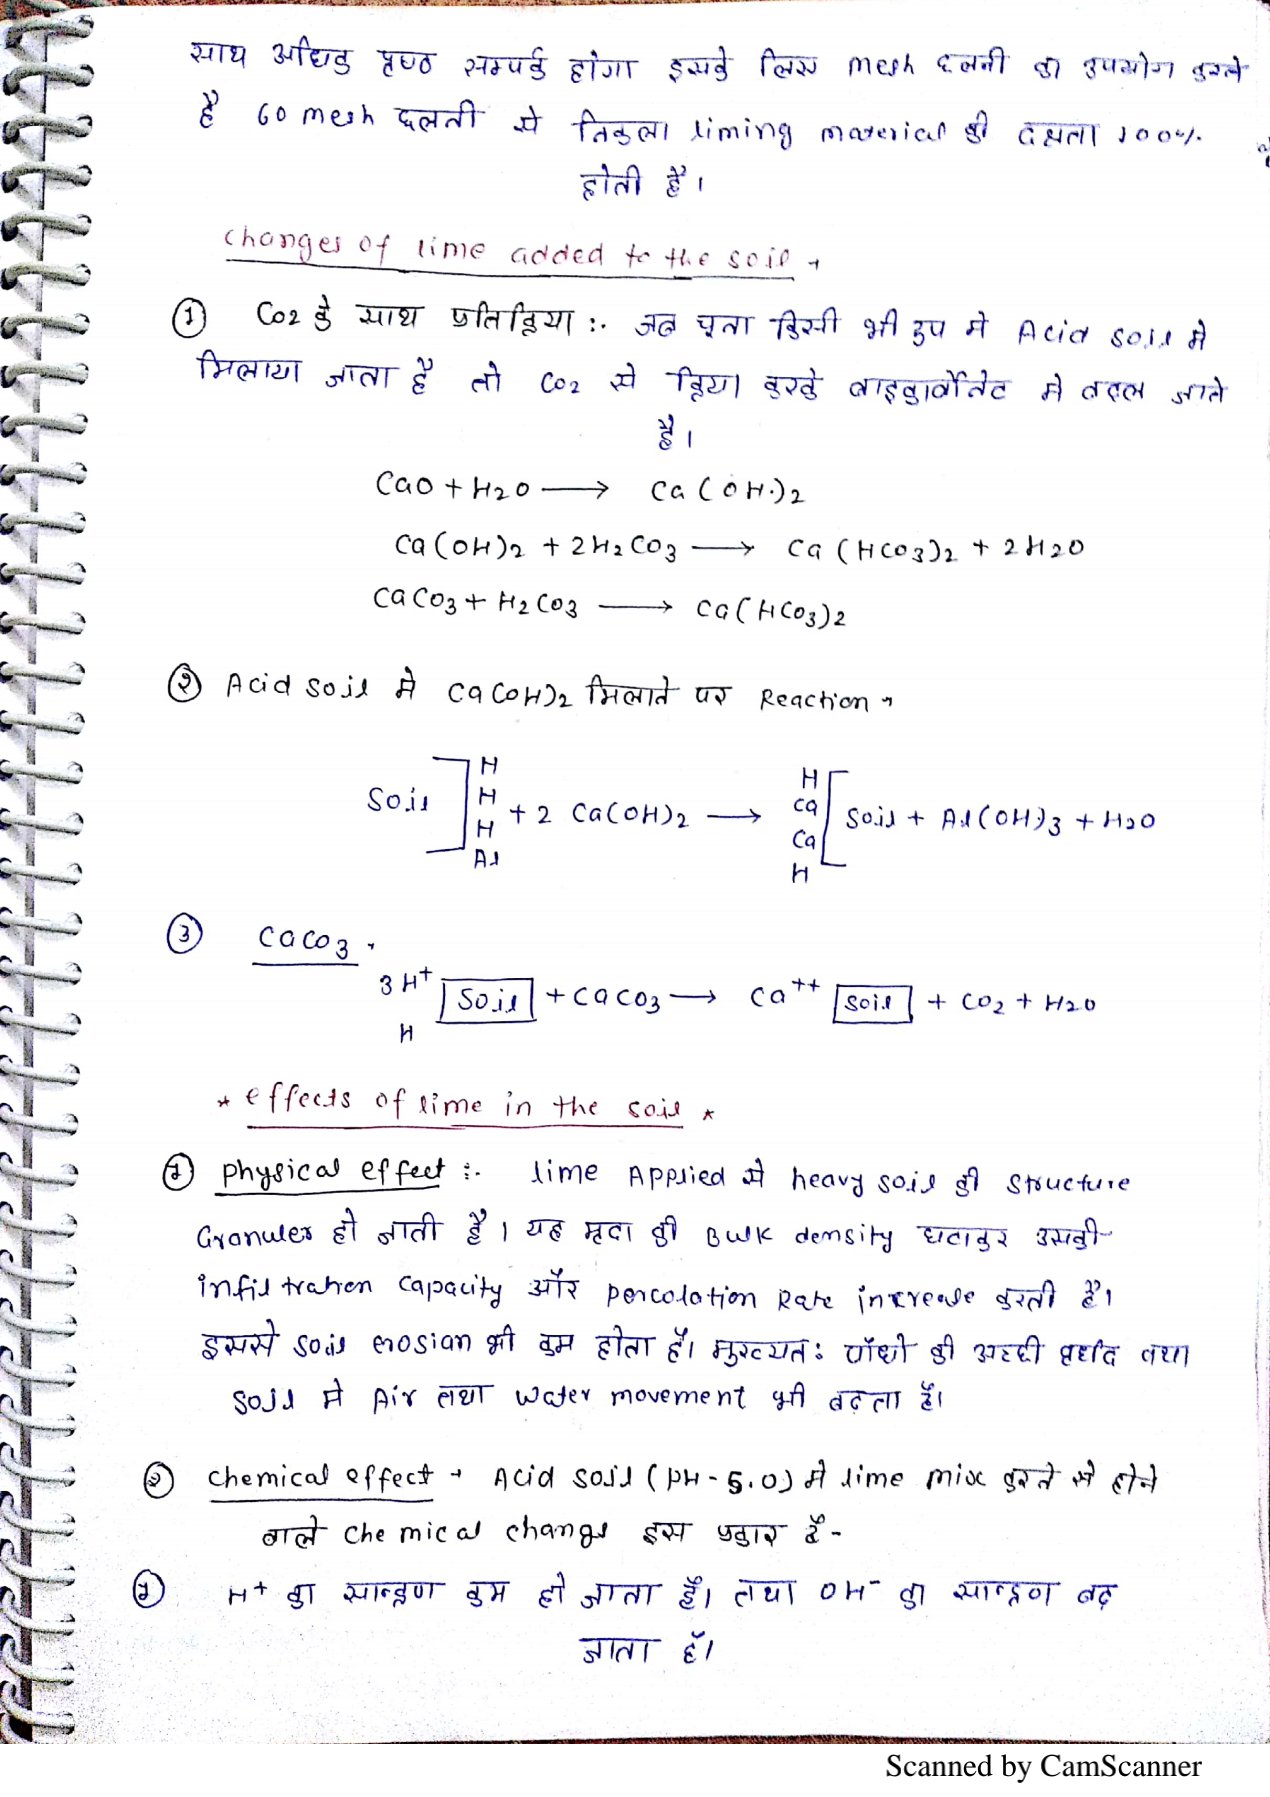 साथ अधिक पृष्ठ सम्पर्क होगा इसके लिए mesh छलनी का उपयोग करते
है 60 mesh छलनी से निकला liming material की दक्षता 100%
होती है।
Changes of lime added to the soil →
① CO2 के साथ प्रतिक्रिया :- जब चूना किसी भी रूप मे Acid soil मे
मिलाया जाता है तो CO2 से क्रिया करके बाइकार्बोनेट मे बदल जाते
है।
CaO + H2O ⟶ Ca(OH)2
Ca(OH)2 + 2H2CO3 ⟶ Ca(HCO3)2 + 2H2O
CaCO3 + H2CO3 ⟶ Ca(HCO3)2
② Acid soil मे Ca(OH)2 मिलाने पर Reaction →
Soil ] H H H Al + 2 Ca(OH)2 ⟶ H Ca Ca H [ Soil + Al(OH)3 + H2O
③ CaCO3 →
3H+ H Soil + CaCO3 ⟶ Ca++ Soil + CO2 + H2O
* effects of lime in the soil *
① Physical effect :- lime Applied से heavy soil की structure
Granuler हो जाती है। यह मृदा की Bulk density घटाकर उसकी
infiltration capacity और percolation Rate increase करती है।
इससे soil erosian भी कम होता है। मुख्यतः पौधो की अच्छी वृद्धि तथा
soil मे Air तथा water movement भी बढ़ता है।
② Chemical effect → Acid soil (PH - 5.0) मे lime mix करने से होने
वाले chemical change इस प्रकार है -
① H+ का सान्द्रण कम हो जाता है। तथा OH- का सान्द्रण बढ़
जाता है।
Scanned by CamScanner